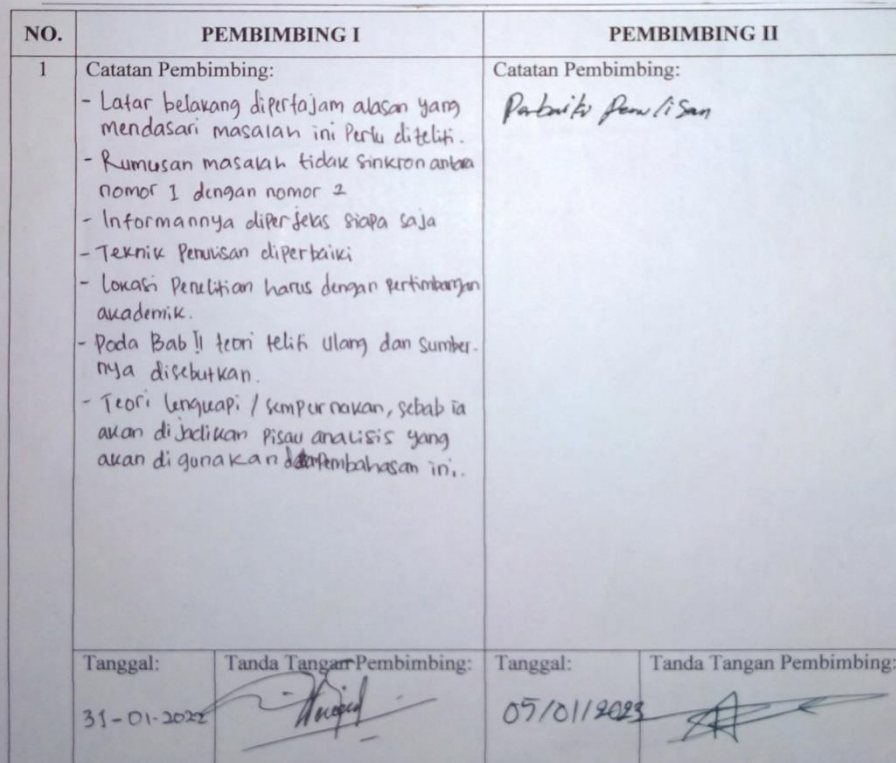 NO. PEMBIMBING I PEMBIMBING II
1 Catatan Pembimbing:
- Latar belakang dipertajam alasan yang
mendasari masalah ini Perlu diteliti.
- Rumusan masalah tidak sinkron antara
nomor 1 dengan nomor 2
- Informannya diperjelas siapa saja
- Teknik Penulisan diperbaiki
- Lokasi Penelitian harus dengan pertimbangan
akademik.
- Pada Bab II teori teliti ulang dan sumber-
nya disebutkan.
- Teori lengkapi / sempurnakan, sebab ia
akan dijadikan pisau analisis yang
akan digunakan pembahasan ini.
Tanggal: Tanda Tangan Pembimbing:
31-01-2022
Catatan Pembimbing:
Perbaiki Penulisan
Tanggal: Tanda Tangan Pembimbing:
05/01/2023